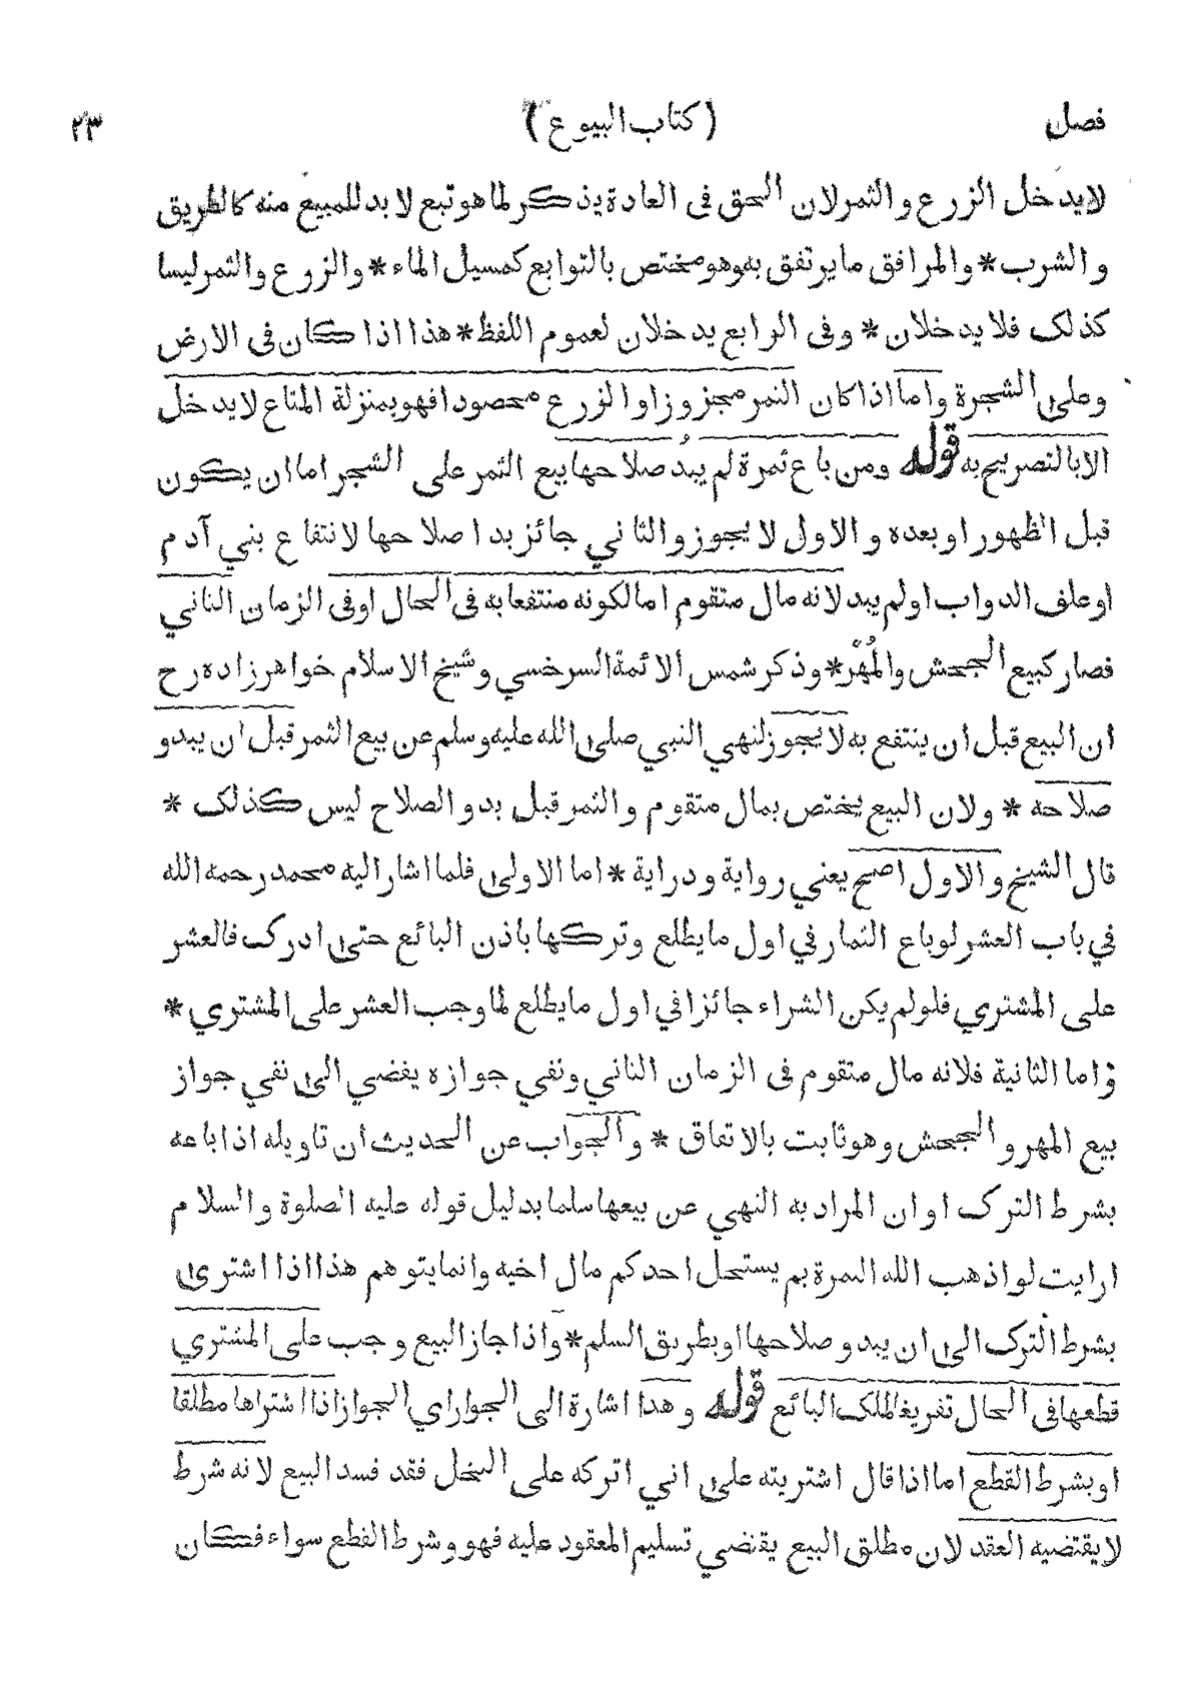 فصل (كتاب البيوع) ٢٣
لا يدخل الزرع والثمر لان الحق في العادة يذكر لما هو تبع لا بد للمبيع منه كالطريق
والشرب * والمرافق ما يرتفق به وهو مختص بالتوابع كمسيل الماء * والزرع والثمر ليسا
كذلك فلا يدخلان * وفى الرابع يدخلان لعموم اللفظ * هذا اذا كان فى الارض
وعلى الشجرة واما اذا كان الثمر مجزوزا والزرع محصودا فهو بمنزلة المتاع لا يدخل
الا بالتصريح به قوله ومن باع ثمرة لم يبد صلاحها بيع الثمر على الشجر اما ان يكون
قبل الظهور او بعده والاول لا يجوز والثاني جائز بدا صلاحها لانتفاع بني آدم
او علف الدواب او لم يبد لانه مال متقوم اما لكونه منتفعا به فى الحال او فى الزمان الثاني
فصار كبيع الجحش والمُهْر * وذكر شمس الائمة السرخسي وشيخ الاسلام خواهرزاده رح
ان البيع قبل ان ينتفع به لا يجوز لنهي النبي صلى الله عليه وسلم عن بيع الثمر قبل ان يبدو
صلاحه * ولان البيع يختص بمال متقوم والثمر قبل بدو الصلاح ليس كذلك *
قال الشيخ والاول اصح يعني رواية ودراية * اما الاولى فلما اشار اليه محمد رحمه الله
في باب العشر لو باع الثمار في اول ما يطلع وتركها باذن البائع حتى ادرك فالعشر
على المشتري فلو لم يكن الشراء جائزا في اول ما يطلع لما وجب العشر على المشتري *
واما الثانية فلانه مال متقوم فى الزمان الثاني ونفي جوازه يفضي الى نفي جواز
بيع المهر والجحش وهو ثابت بالاتفاق * والجواب عن الحديث ان تاويله اذا باعه
بشرط الترك او ان المراد به النهي عن بيعها سلما بدليل قوله عليه الصلوة والسلام
ارايت لو اذهب الله الثمرة بم يستحل احدكم مال اخيه وانما يتوهم هذا اذا اشترى
بشرط الترك الى ان يبدو صلاحها او بطريق السلم * واذا جاز البيع وجب على المشتري
قطعها فى الحال تفريغا لملك البائع قوله وهذا اشارة الى الجواز اي الجواز اذا اشتراها مطلقا
او بشرط القطع اما اذا قال اشتريته على اني اتركه على النخل فقد فسد البيع لانه شرط
لا يقتضيه العقد لان مطلق البيع يقتضي تسليم المعقود عليه فهو وشرط القطع سواء فكان